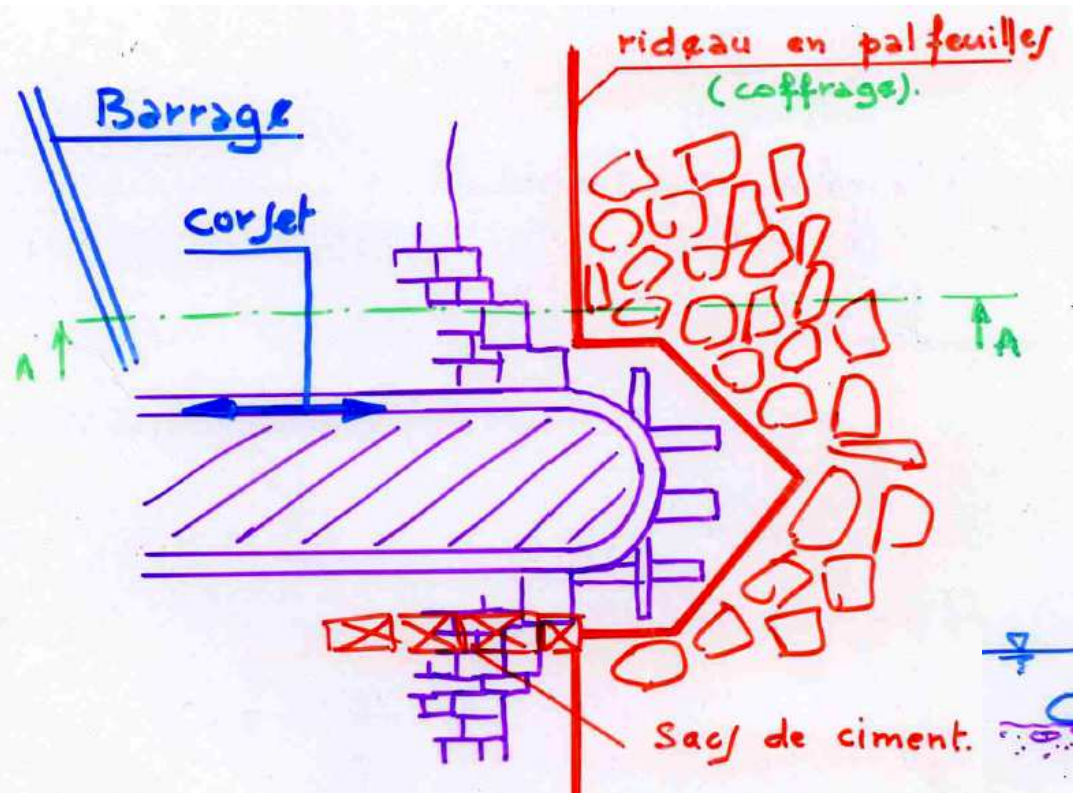 rideau en palfeuilles
(coffrage).
Barrage
corset
A
A
Sacs de ciment.